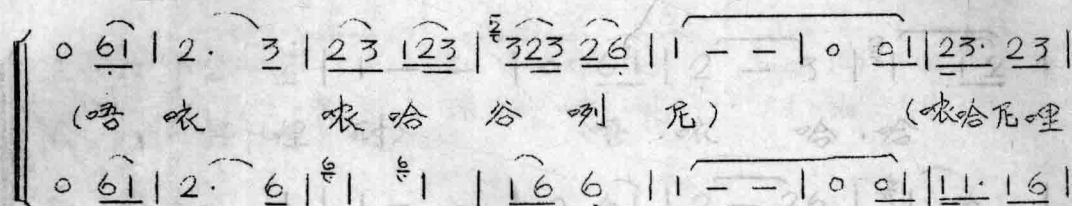 0 61 | 2· 3 | 23 123 | 323 26 | 1 - - | 0 01 | 23· 23 |
(唔哝 哝哈谷咧尼) (哝哈尼哩
0 61 | 2· 6 | 1 1 | 16 6 | 1 - - | 0 01 | 11· 16 |